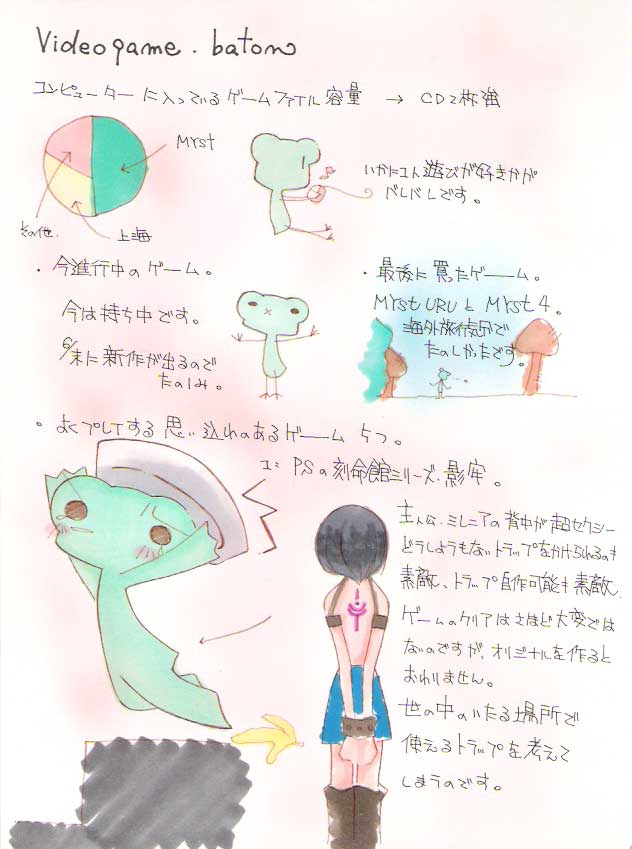 Videogame. baton
コンピューターに入っているゲームファイル容量 → CD2枚強
Myst
その他.
上海
いかにコト遊びが好きかが
バレバレです。
・今進行中のゲーム。
今は持ち中です。
6/末に新作が出るので
たのしみ。
・最後に買ったゲーム。
Myst URUとMyst 4。
海外旅行気分で
たのしかったです。
。よくプレイする思い込れのあるゲーム5つ。
1: PSの刻命館シリーズ・影牢。
主人公.ミレニアの背中が超セクシー
どうしようもないトラップをかけられるのも
素敵、トラップ自作可能も素敵.
ゲームのクリアはさほど大変では
ないのですが、オリジナルを作ると
おわりません。
世の中のいたる場所で
使えるトラップを考えて
しまうのです。